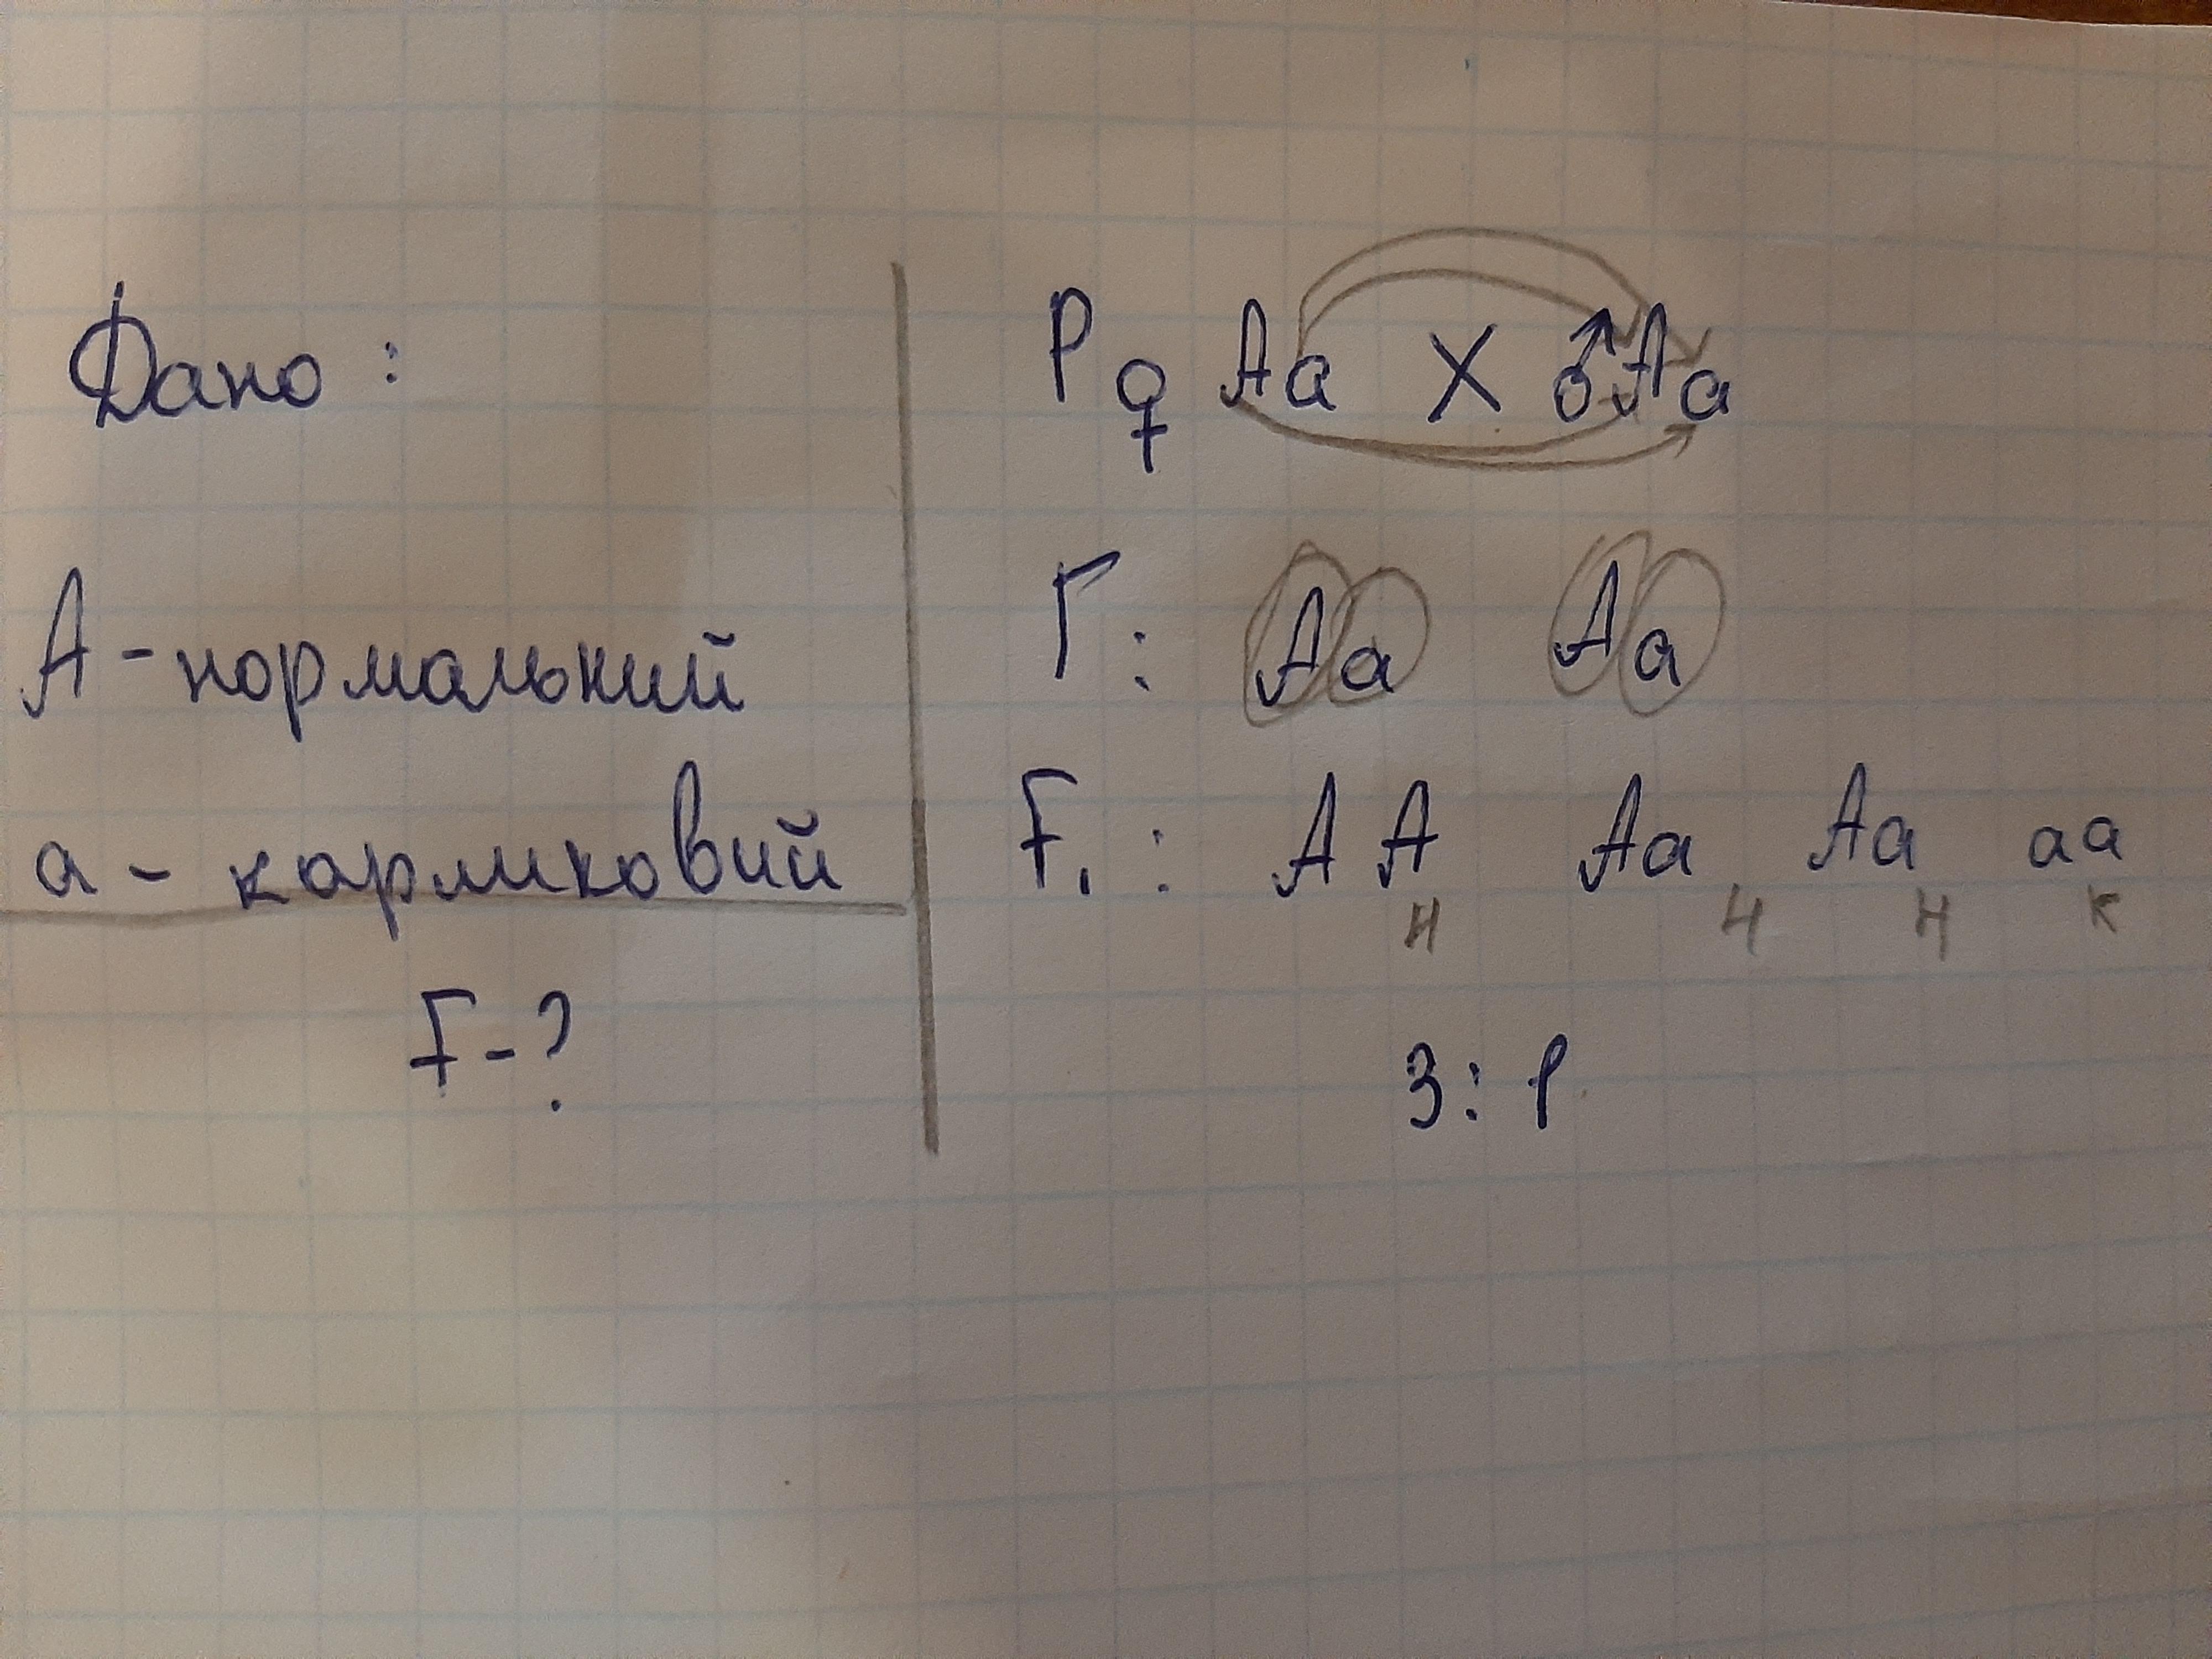 Дано:
А - нормальний
а - карликовий
F - ?
P ♀ Aa X ♂ Aa
Г: Aa Aa
F1: AA Aa Aa aa
н н н к
3:1